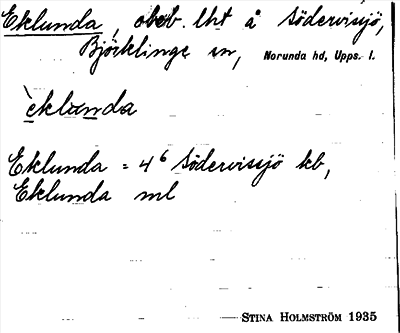 Eklunda, obeb. lht å Södervissjö,
Björklinge sn, Norunda hd, Upps. l.
èklùnda
Eklunda = 4⁶ Södervissjö kb,
Eklunda ml
STINA HOLMSTRÖM 1935